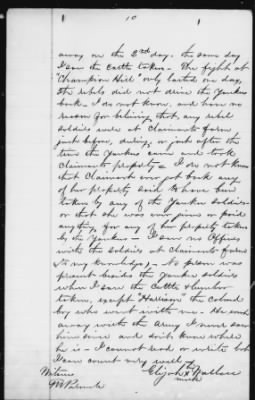 10
away on the 3rd day. the same day
I saw the Cattle taken - The fight at
"Champion Hill" only lasted one day,
the rebels did not drive the Yankees
back. I do not know, and have no
reason for beliving that, any rebel
soldiers were at Claimants farm
just before, during, or just after the
time the Yankees came and took
Claimants property - I do not know
that Claimant ever got back any
of her property said to have been
taken by any of the Yankee soldiers
or that she was ever given or paid
anything for any of her property taken
by the Yankees - I saw no Officers
with the soldiers at Claimants farm
to my knowledge - No person was
present besides the Yankee soldiers
when I saw the Cattle & lumber
taken, except "Harrison" the colored
boy who went with me - He went
away with the Army I never saw
him since and don't know where
he is - I cannot read or write but
I can count very well
Elijah X Wallace
Witness mark